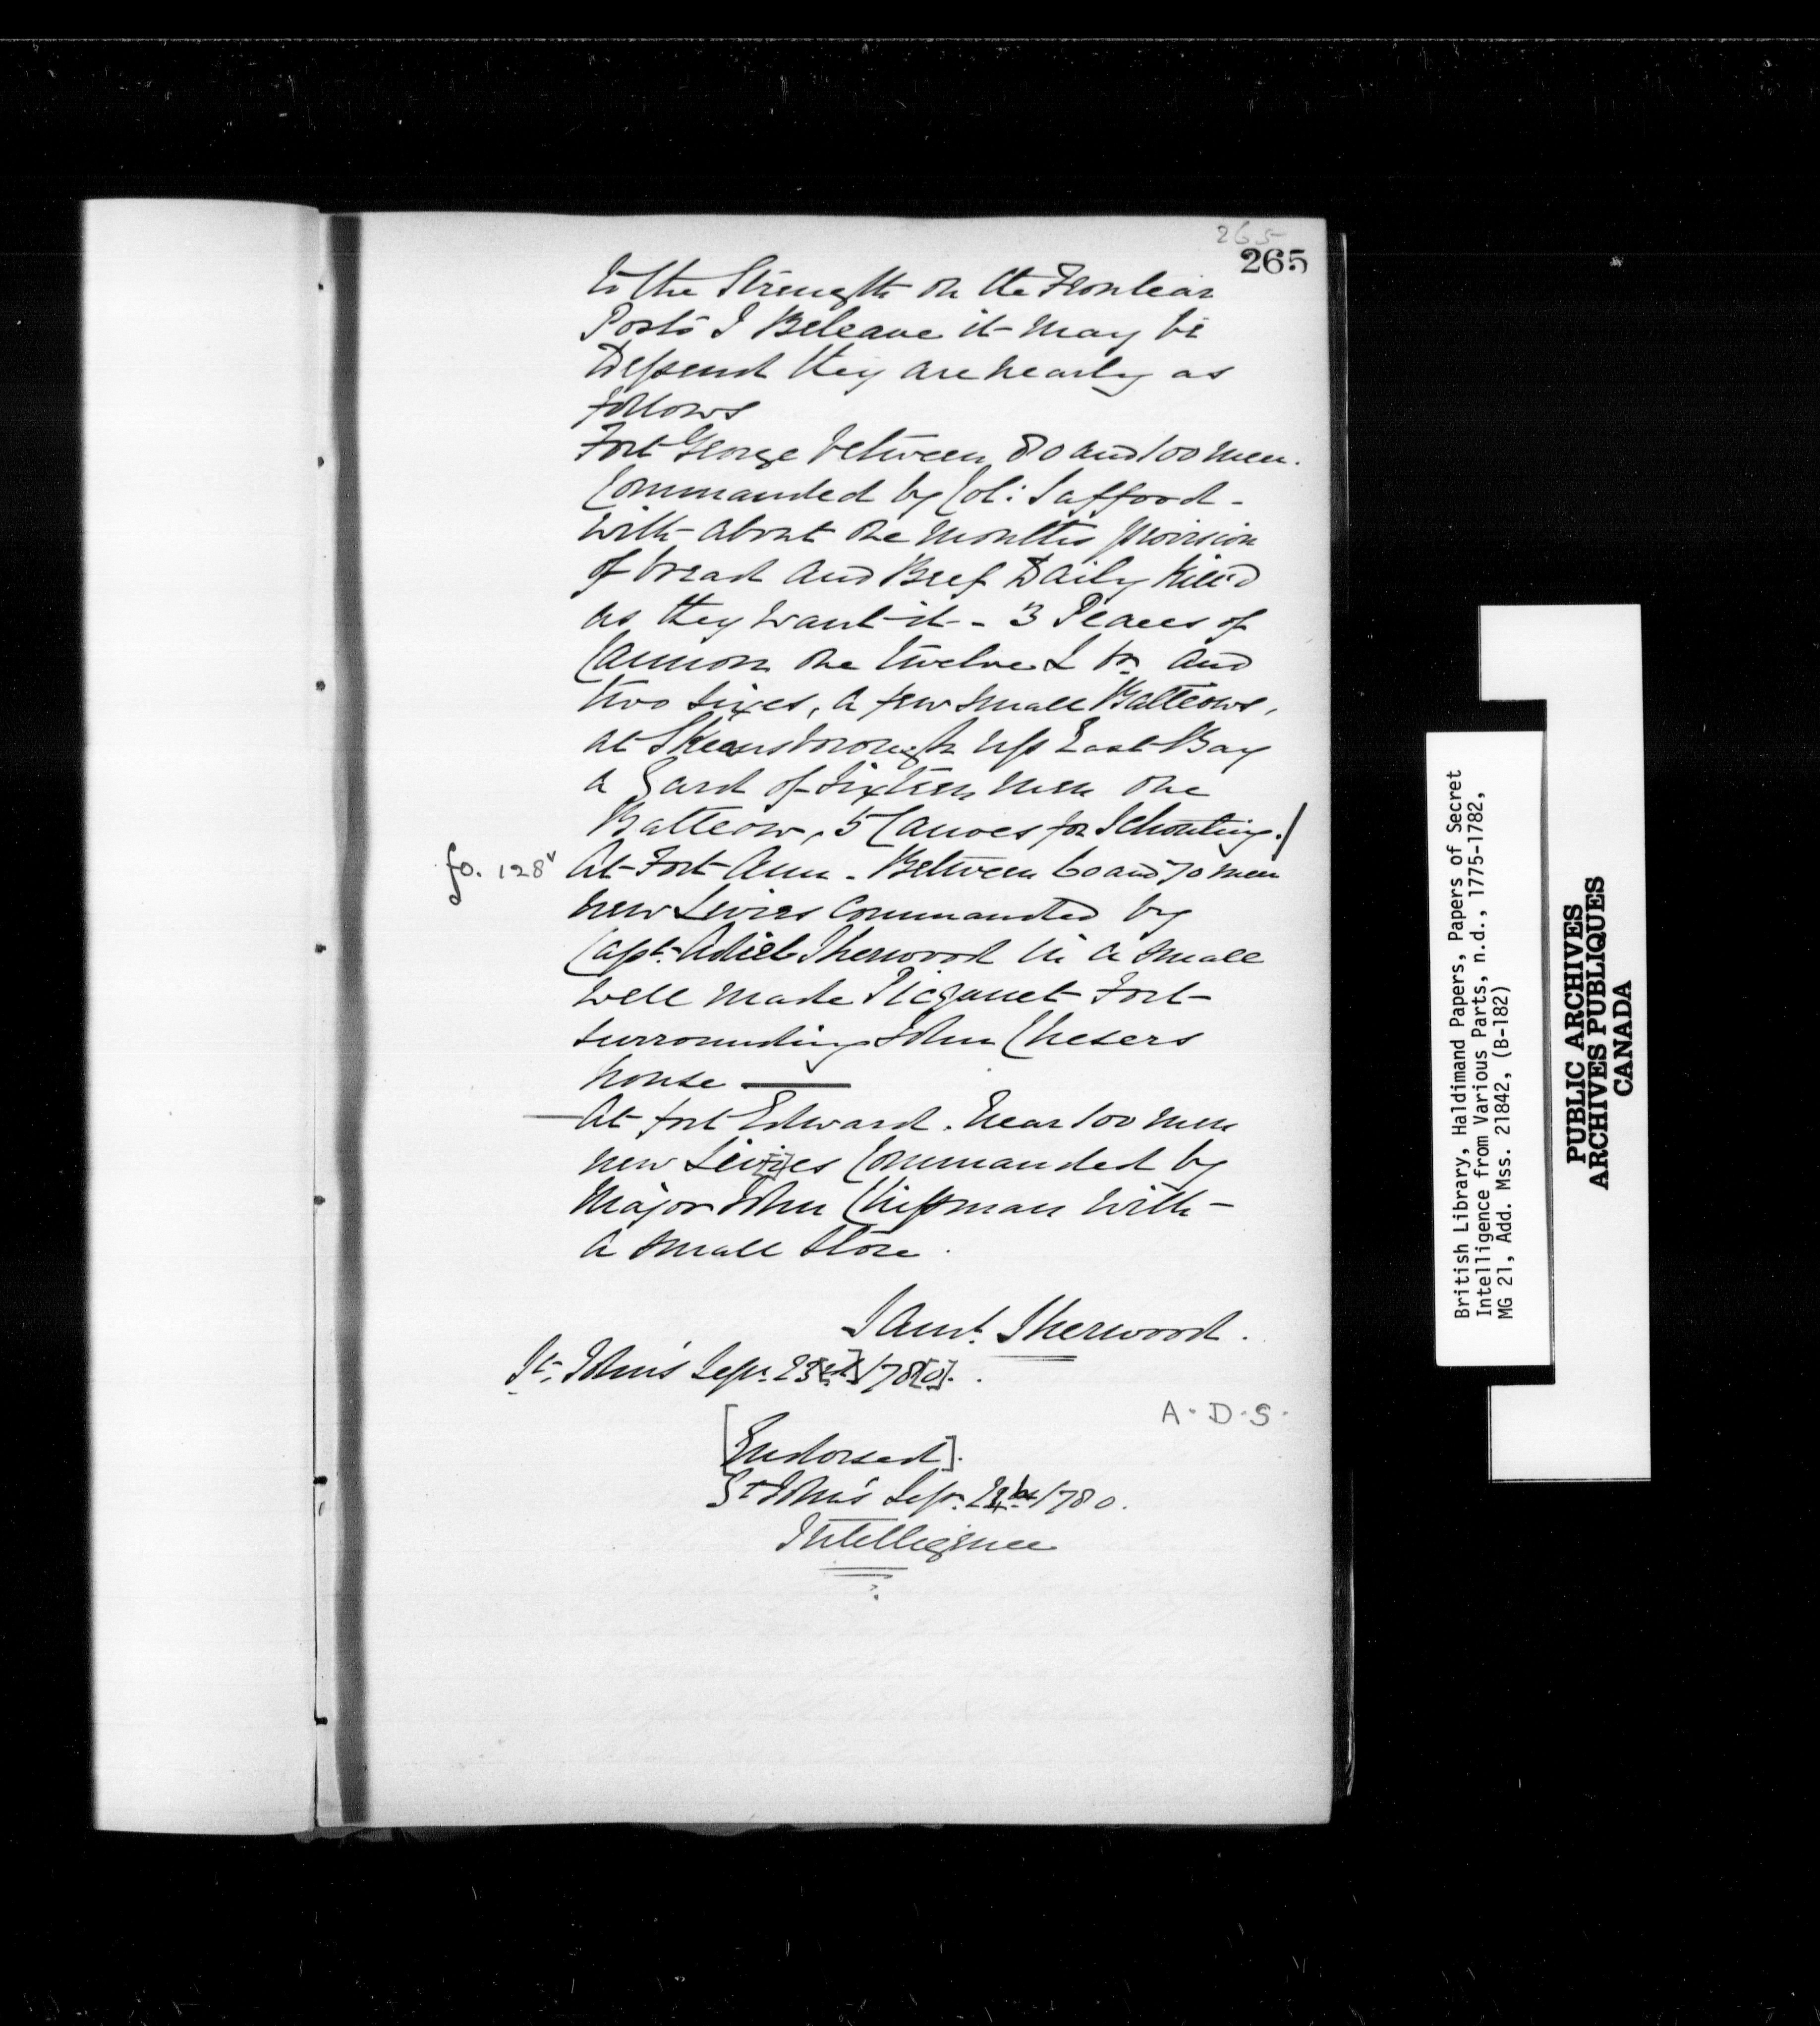 265
265
to the Strength on the Frontear
Posts I Beleave it may be
Depend they are nearly as
follows
Fort George between 80 and 100 men.
Commanded by Col: Safford -
with about one months provision
of bread and Beef Daily Kill'd
as they want it - 3 Peaces of
Cannon one twelve L br and
two sixes, a few small Batteows,
at Skeensborough up East Bay
a Gard of Sixteen men one
Batteow, 5 Canoes for Schouting./
fo. 128v At Fort Ann. Between 60 and 70 men
new Levies Commanded by
Capt. Adiel Sherwood in a small
well made Picquet Fort
surrounding John Chesers
house —
— At fort Edward. near 100 men
new Levi[i]es Commanded by
Major John Chipman with -
a small Store.
Samt. Sherwood.
St. John's Sepr. 23[rd] 178[0].
A. D. S.
[Endorsed].
St John's Sepr. 1780.
Intelligence
British Library, Haldimand Papers, Papers of Secret
Intelligence from Various Parts, n.d., 1775-1782,
MG 21, Add. Mss. 21842, (B-182)
PUBLIC ARCHIVES
ARCHIVES PUBLIQUES
CANADA